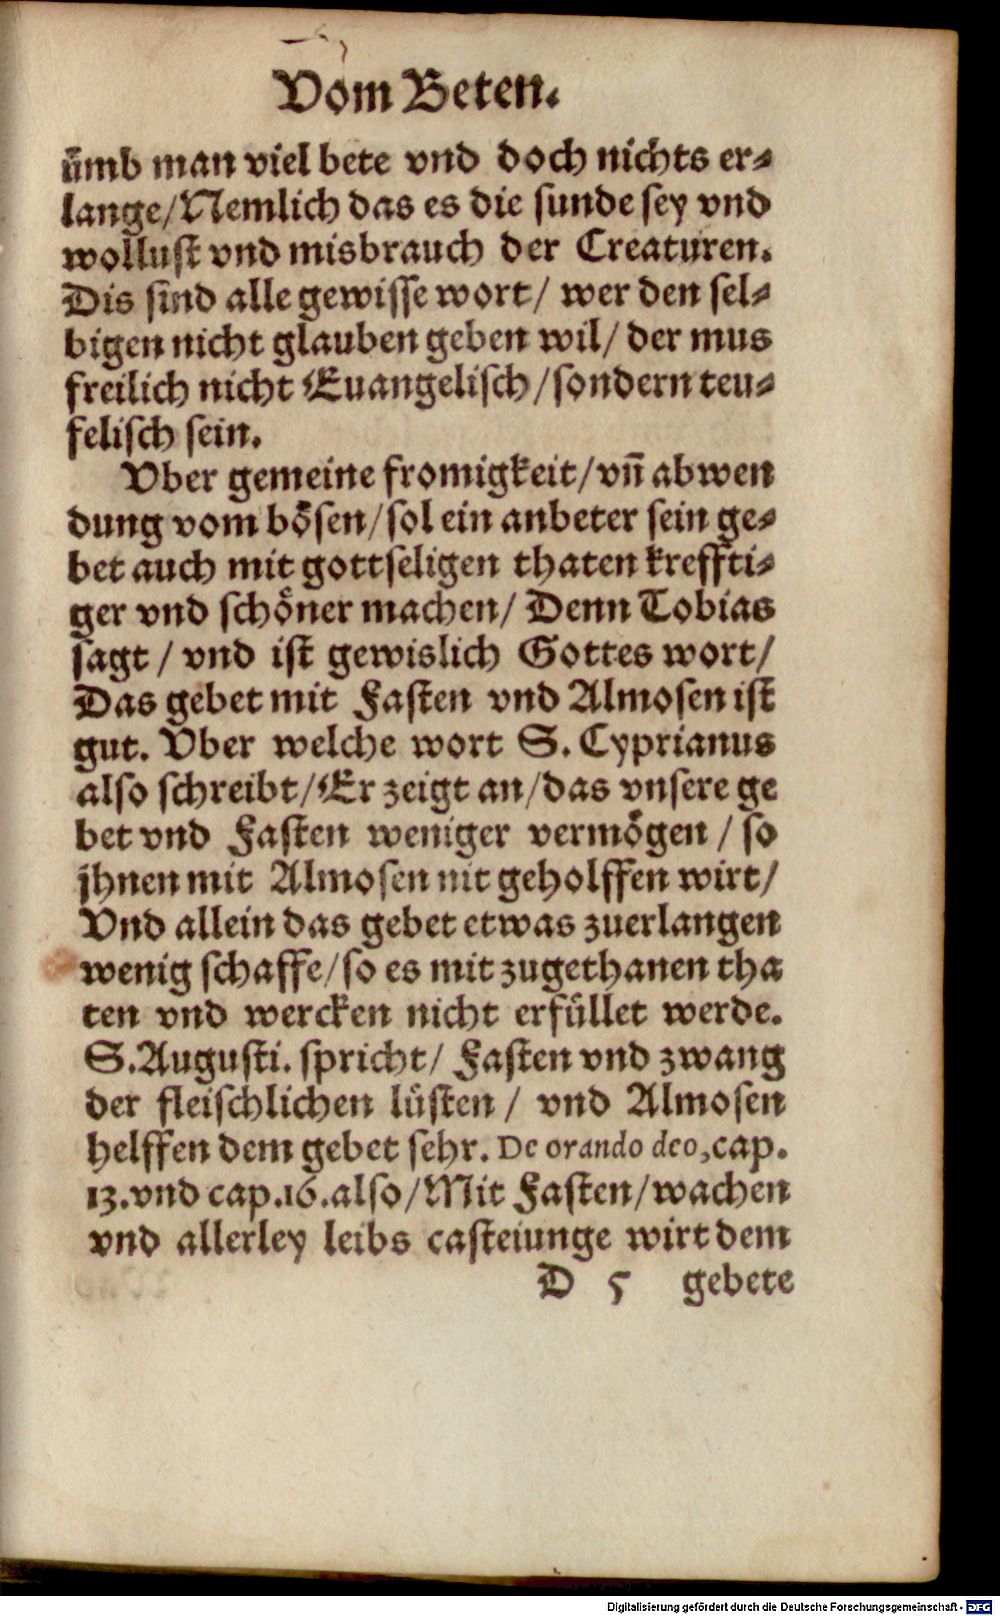 Vom Beten.
ũmb man viel bete vnd doch nichts er⸗
lange/Nemlich das es die sunde sey vnd
wollust vnd misbrauch der Creaturen.
Dis sind alle gewisse wort/ wer den sel⸗
bigen nicht glauben geben wil/ der mus
freilich nicht Euangelisch/sondern teu⸗
felisch sein.
Vber gemeine fromigkeit/vñ abwen
dung vom bösen/sol ein anbeter sein ge⸗
bet auch mit gottseligen thaten kreffti⸗
ger vnd schöner machen/ Denn Tobias
sagt / vnd ist gewislich Gottes wort/
Das gebet mit Fasten vnd Almosen ist
gut. Vber welche wort S. Cyprianus
also schreibt/Er zeigt an/das vnsere ge
bet vnd Fasten weniger vermögen / so
jhnen mit Almosen nit geholffen wirt/
Vnd allein das gebet etwas zuerlangen
wenig schaffe/so es mit zugethanen tha
ten vnd wercken nicht erfüllet werde.
S.Augusti. spricht/ Fasten vnd zwang
der fleischlichen lüsten / vnd Almosen
helffen dem gebet sehr. De orando deo,cap.
13.vnd cap.16.also/Mit Fasten/wachen
vnd allerley leibs casteiunge wirt dem
D 5 gebete
Digitalisierung gefördert durch die Deutsche Forschungsgemeinschaft - DFG